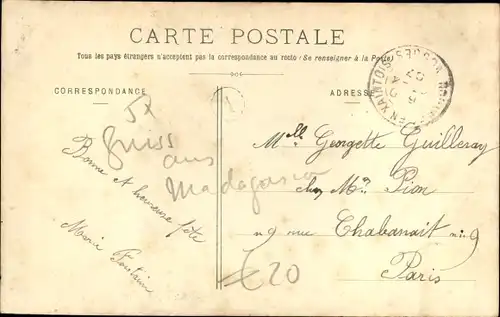 CARTE POSTALE
Tous les pays étrangers n'acceptent pas la correspondance au recto (Se renseigner à la Poste)
CORRESPONDANCE
ADRESSE
Bonne et heureuse fête
Marie Fontain
Melle Georgette Guilleray
chez Mr Pion
n 9 rue Chabanait n 9
Paris
aus
Madagascar
€20
EN XAINTOIS VOSGES